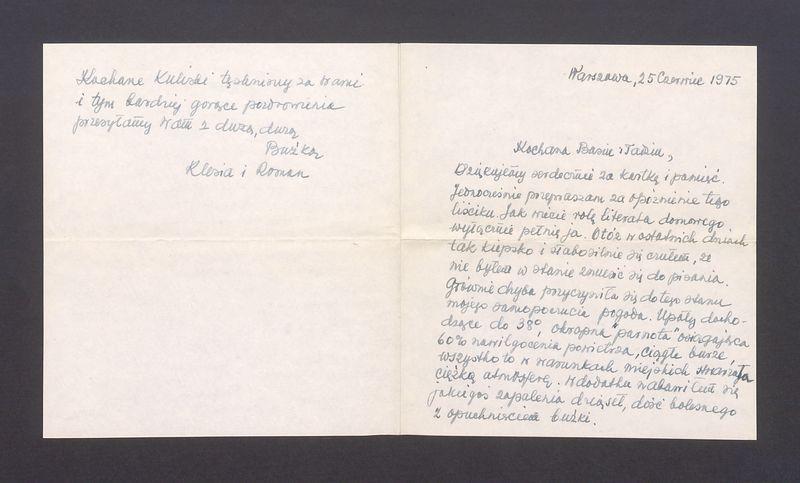 Warszawa, 25 Czerwiec 1975
Kochana Basiu i Tadziu,
Dziękujemy serdecznie za kartkę i pamięć.
Jednocześnie przepraszam za opóźnienie tego
liściku. Jak wiecie rolę literata domowego
wyłącznie pełnię ja. Otóż w ostatnich dniach
tak kiepsko i słabosilnie się czułem, że
nie byłem w stanie zmusić się do pisania.
Głównie chyba przyczyniła się do tego stanu
mojego samopoczucia pogoda. Upały docho-
dzące do 38°, okropna "parnota" osiągająca
60% nawilgocenia powietrza, ciągłe burze,
wszystko to w warunkach miejskich stwarzała
ciężką atmosferę. W dodatku nabawiłem się
jakiegoś zapalenia dziąseł, dość bolesnego
z opuchnięciem buźki.
Kochane Kuliski tęsknimy za Wami
i tym bardziej gorące pozdrowienia
przesyłamy Wam z dużą, dużą
Buźką
Klosia i Roman